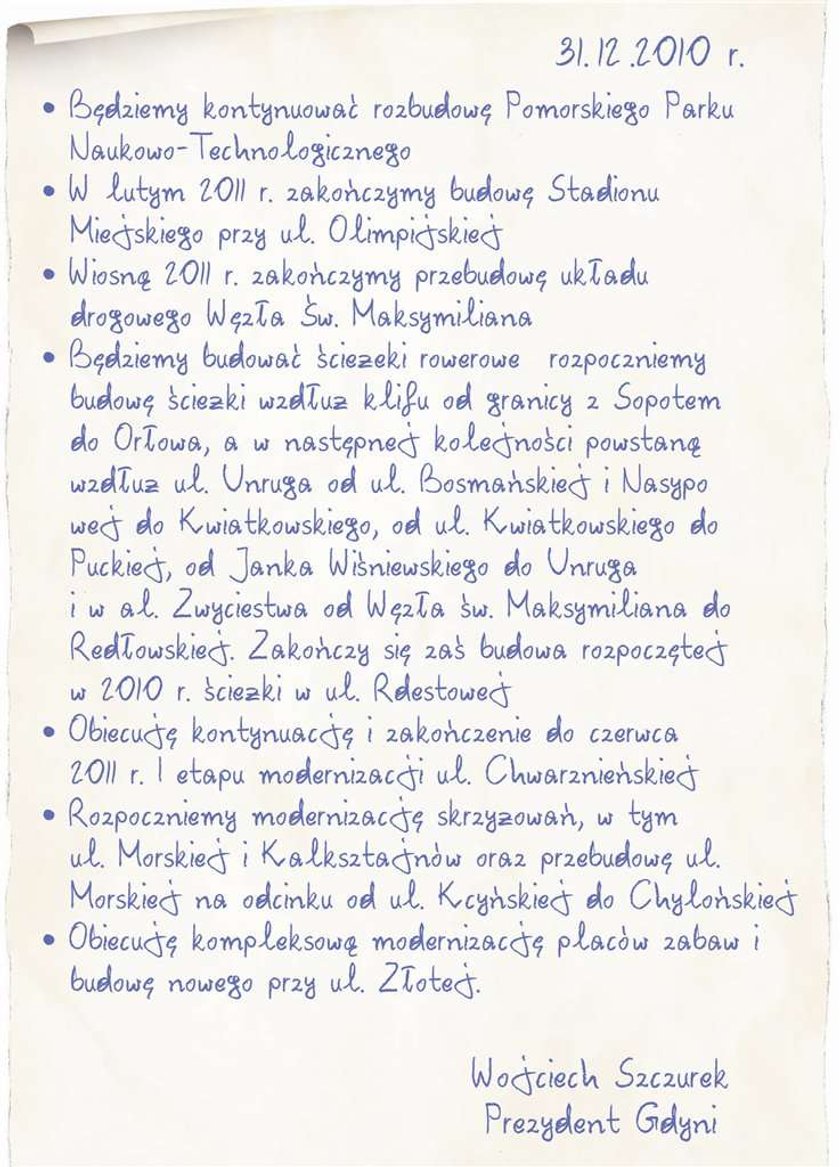 31.12.2010 r.
• Będziemy kontynuować rozbudowę Pomorskiego Parku
Naukowo-Technologicznego
• W lutym 2011 r. zakończymy budowę Stadionu
Miejskiego przy ul. Olimpijskiej
• Wiosną 2011 r. zakończymy przebudowę układu
drogowego Węzła Św. Maksymiliana
• Będziemy budować ściezeki rowerowe rozpoczniemy
budowę ściezki wzdłuz klifu od granicy z Sopotem
do Orłowa, a w następnej kolejności powstaną
wzdłuz ul. Unruga od ul. Bosmańskiej i Nasypo
wej do Kwiatkowskiego, od ul. Kwiatkowskiego do
Puckiej, od Janka Wiśniewskiego do Unruga
i w al. Zwyciestwa od Węzła św. Maksymiliana do
Redłowskiej. Zakończy się zaś budowa rozpoczętej
w 2010 r. ściezki w ul. Rdestowej
• Obiecuję kontynuację i zakończenie do czerwca
2011 r. I etapu modernizacji ul. Chwarznieńskiej
• Rozpoczniemy modernizację skrzyzowań, w tym
ul. Morskiej i Kalksztajnów oraz przebudowę ul.
Morskiej na odcinku od ul. Kcyńskiej do Chylońskiej
• Obiecuję kompleksową modernizację placów zabaw i
budowę nowego przy ul. Złotej.
Wojciech Szczurek
Prezydent Gdyni